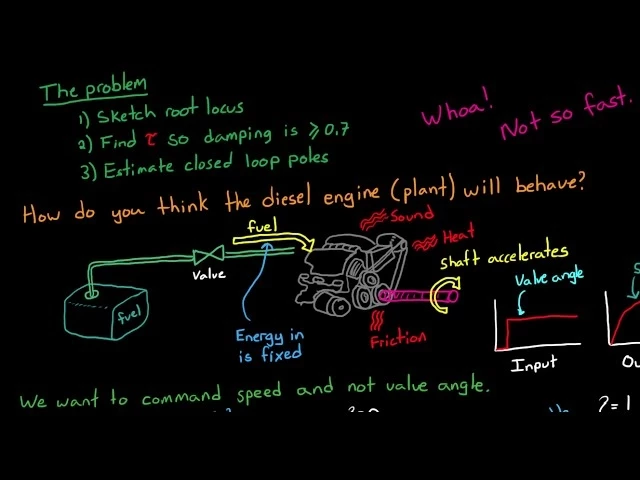 The problem
1) Sketch root locus
2) Find τ so damping is ≥ 0.7
3) Estimate closed loop poles
Whoa!
Not so fast.
How do you think the diesel engine (plant) will behave?
fuel
Sound
Heat
Valve
shaft accelerates
Valve angle
fuel
Energy in
is fixed
Friction
Input
We want to command speed and not valve angle.